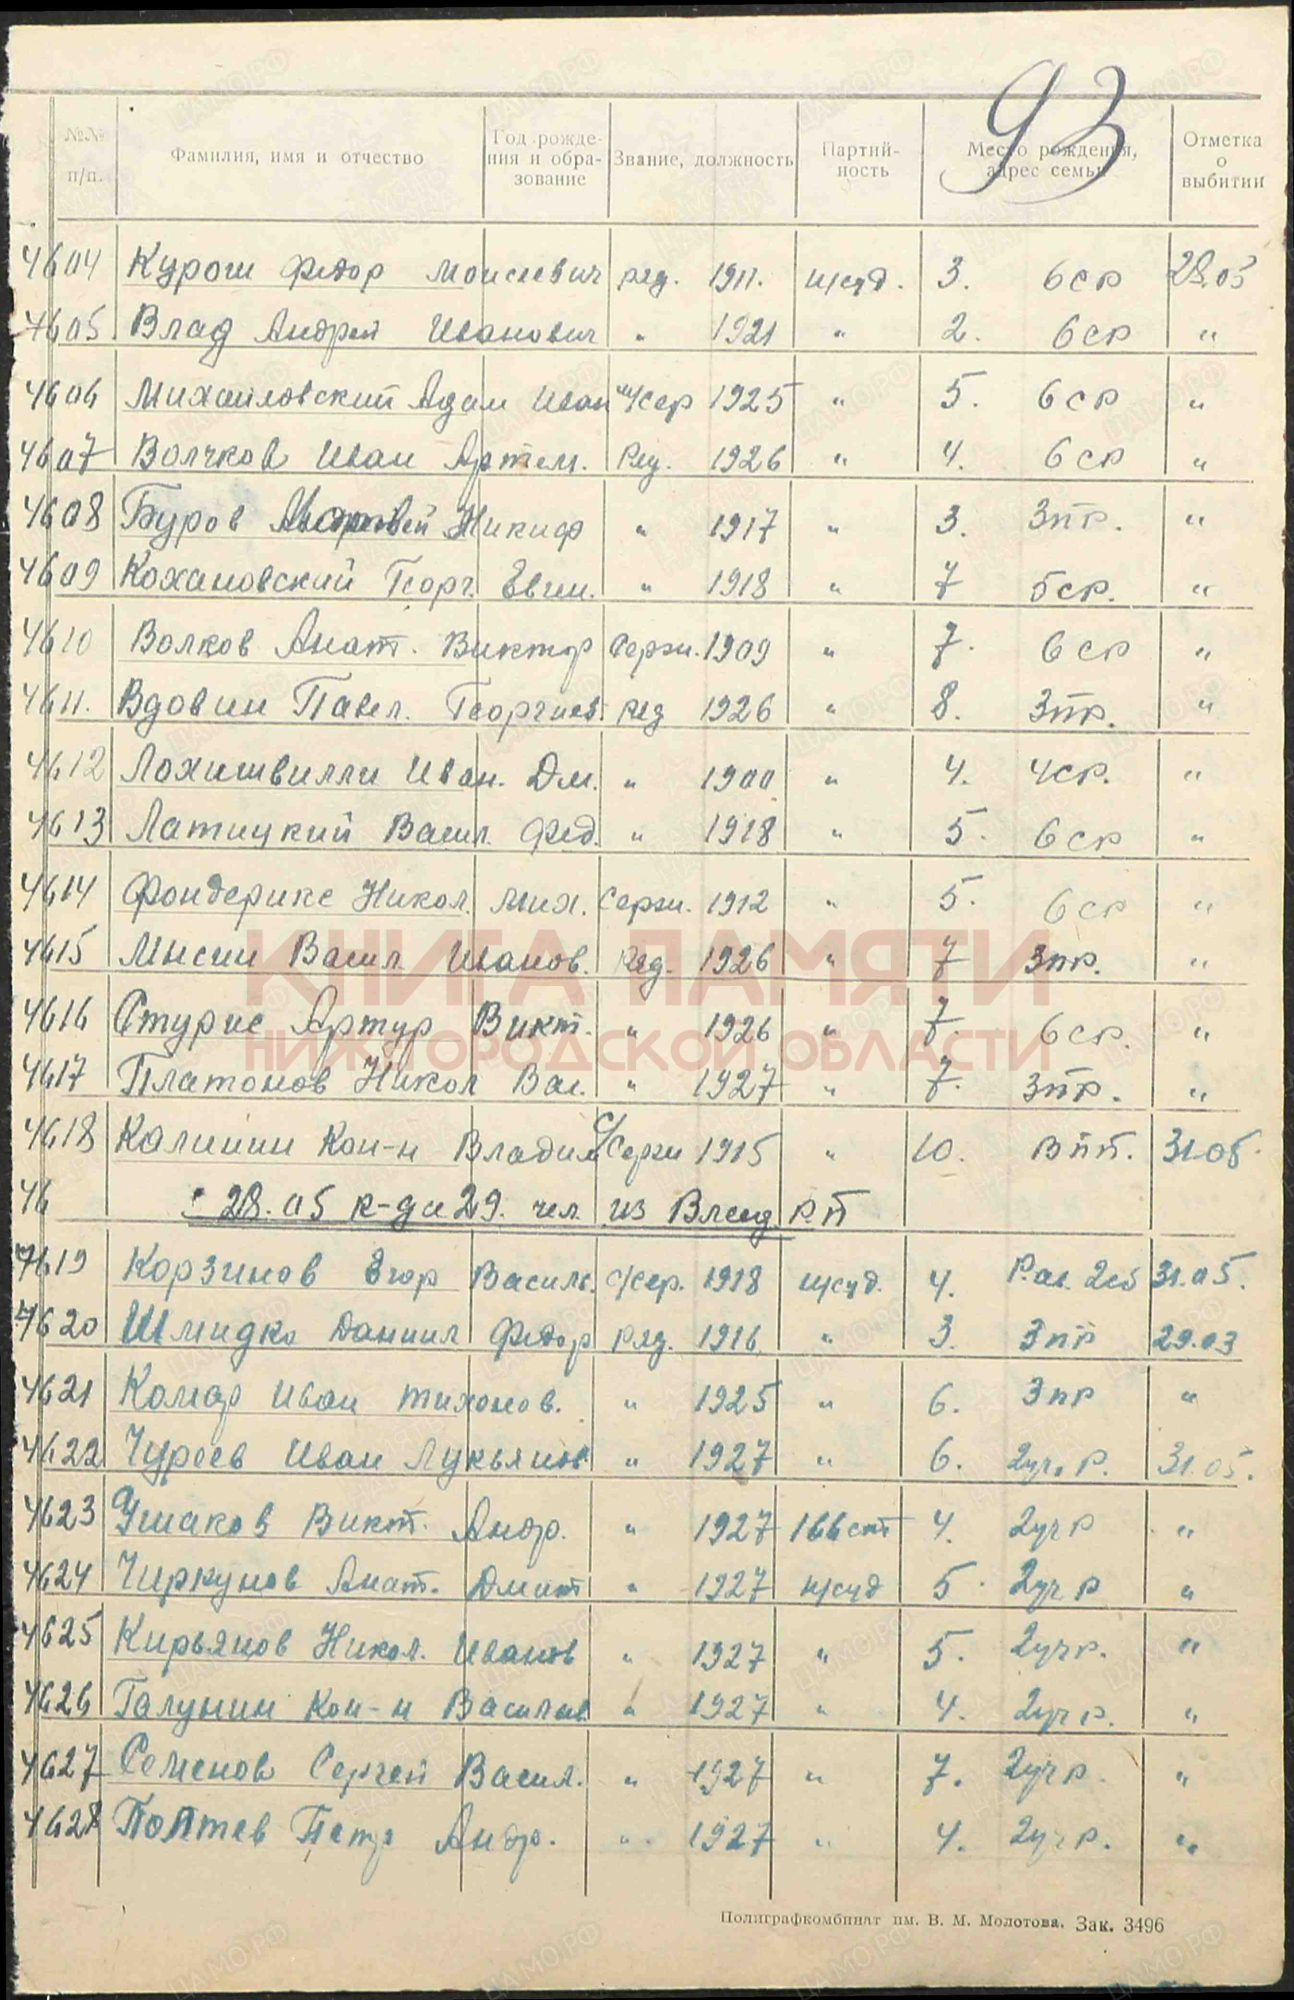 93
№№ п/п. Фамилия, имя и отчество Год рожде- ния и обра- зование Звание, должность Партий- ность Место рождения, адрес семьи Отметка о выбитии
4604 Курош Федор Моисеевич ряд. 1911. щсуд. 3. 6 ср 28.05
4605 Влад Андрей Иванович " 1921 " 2. 6 ср "
4606 Михайловский Адам Иван 1925 " 5. 6 ср "
4607 Волчков Иван Артем. Ряд. 1926 " 4. 6 ср "
4608 Буров Никиф " 1917 " 3. 3пр. "
4609 Кохановский Георг. Евген. " 1918 " 7 5ср. "
4610 Волков Анат. Виктор Серж. 1909 " 7. 6 ср "
4611. Вдовин Павел. Георгиев. ряд 1926 " 8. 3пр. "
4612 Лохишвилли Иван. Дм. " 1900 " 4. 4ср. "
4613 Латицкий Васил. Фед. " 1918 " 5. 6 ср "
4614 Фондерикс Никол. Мих. Серж. 1912 " 5. 6 ср "
4615 Мысин Васил. Иванов. Ряд. 1926 " 7 3пр. "
4616 Стурис Артур Викт. " 1926 " 7. 6 ср. "
4617 Платонов Никол Вас. " 1927 " 7. 3пр. "
4618 Калинин Кон-н Владим с/Серж 1915 " 10. В П П. 31.05.
46 28.05 к-да 29. чел. из Влад Р.П
4619 Корзинов Егор Василь. с/сер. 1918 щсуд. 4. 31.05.
4620 Шмидко Даниил Федор ряд. 1916. " 3. 3 пр 29.03
4621 Комар Иван Тихонов. " 1925 " 6. 3 пр "
4622 Чуреев Иван Лукьянов " 1927 " 6. 2уч. р. 31.05.
4623 Ушаков Викт. Андр. " 1927 166 сп 4. 2уч р "
4624 Чиркунов Анат. Дмит " 1927 щсуд 5. 2уч р "
4625 Кирьянов Никол. Иванов " 1927 " 5. 2учр. "
4626 Галунин Кон-н Васильев " 1927 " 4. 2уч р. "
4627 Семенов Сергей Васил. " 1927 " 7. 2уч р. "
4628 Поптев Петр Андр. " 1927 " 4. 2уч р. "
КНИГА ПАМЯТИ
НИЖЕГОРОДСКОЙ ОБЛАСТИ
Полиграфкомбинат им. В. М. Молотова. Зак. 3496